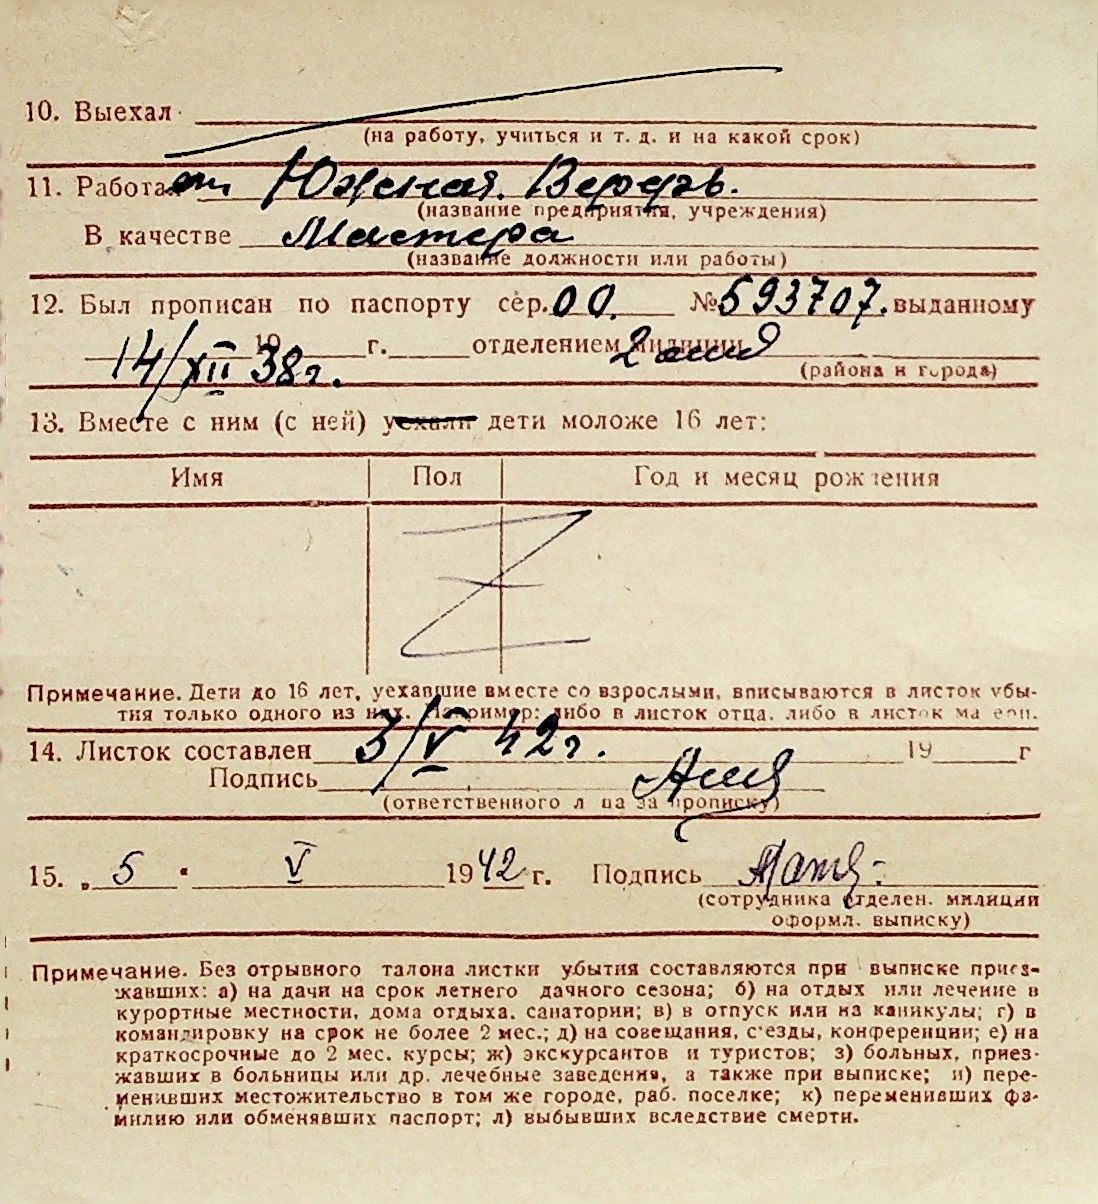 10. Выехал
(на работу, учиться и т. д. и на какой срок)
11. Работа Южная Верфь.
(название предприятия, учреждения)
В качестве Мастера
(название должности или работы)
12. Был прописан по паспорту сер. 00. № 593707. выданному
14/XII 38г. 19 г. отделением милиции 2
(района и города)
13. Вместе с ним (с ней) уехали дети моложе 16 лет:
Имя Пол Год и месяц рождения
Z
Примечание. Дети до 16 лет, уехавшие вместе со взрослыми, вписываются в листок убы-
тия только одного из них. Например: либо в листок отца, либо в листок матери.
14. Листок составлен 3/V 42г. 19 г
Подпись
(ответственного лица за прописку)
15. „ 5 " V 1942 г. Подпись
(сотрудника отделен. милиции
оформл. выписку)
Примечание. Без отрывного талона листки убытия составляются при выписке приез-
жавших: а) на дачи на срок летнего дачного сезона; б) на отдых или лечение в
курортные местности, дома отдыха, санатории; в) в отпуск или на каникулы; г) в
командировку на срок не более 2 мес.; д) на совещания, с'езды, конференции; е) на
краткосрочные до 2 мес. курсы; ж) экскурсантов и туристов; з) больных, приез-
жавших в больницы или др. лечебные заведения, а также при выписке; и) пере-
менивших местожительство в том же городе, раб. поселке; к) переменивших фа-
милию или обменявших паспорт; л) выбывших вследствие смерти.